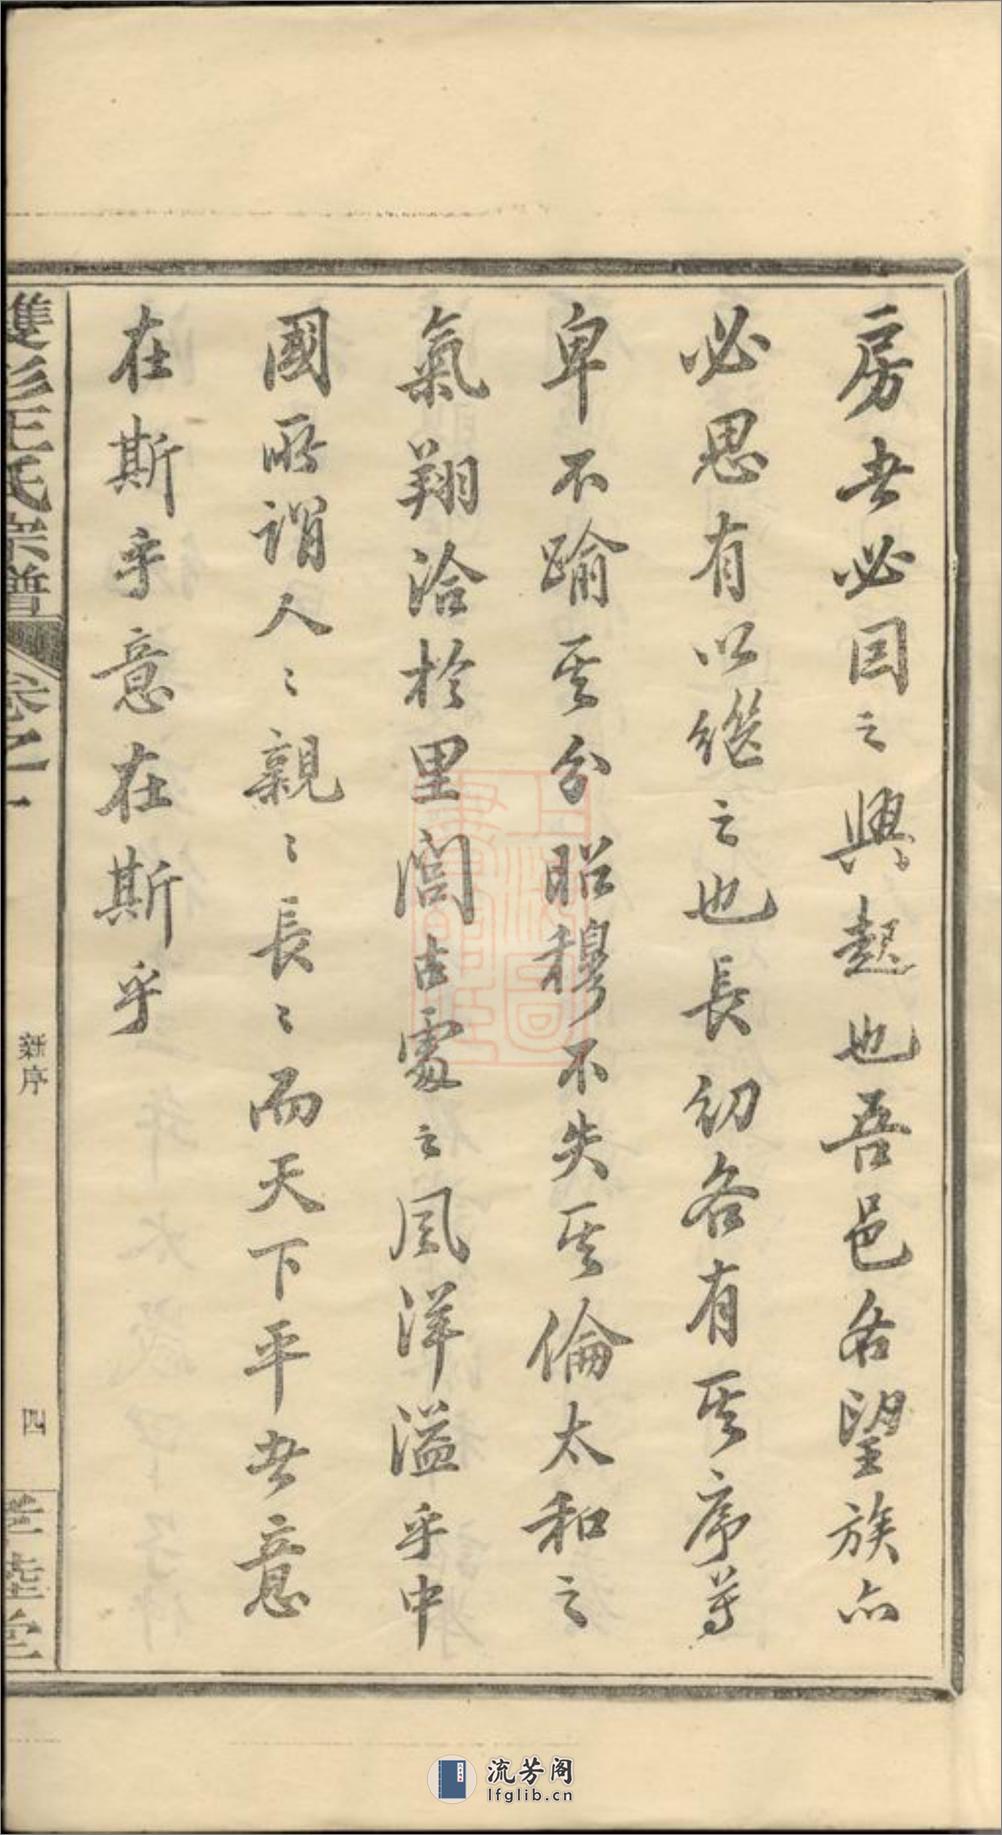 房者必因之興起也吾邑名望族亦
必思有以繼之也長幼各有其序尊
卑不踰其分昭穆不失其倫太和之
氣翔洽於里閭古處之風洋溢乎中
國所謂人〻親〻長〻而天下平者意
在斯乎意在斯乎
雙杉王氏宗譜
卷之一
新序
四
孝睦堂
上海圖書館藏
流芳阁
lfglib.cn